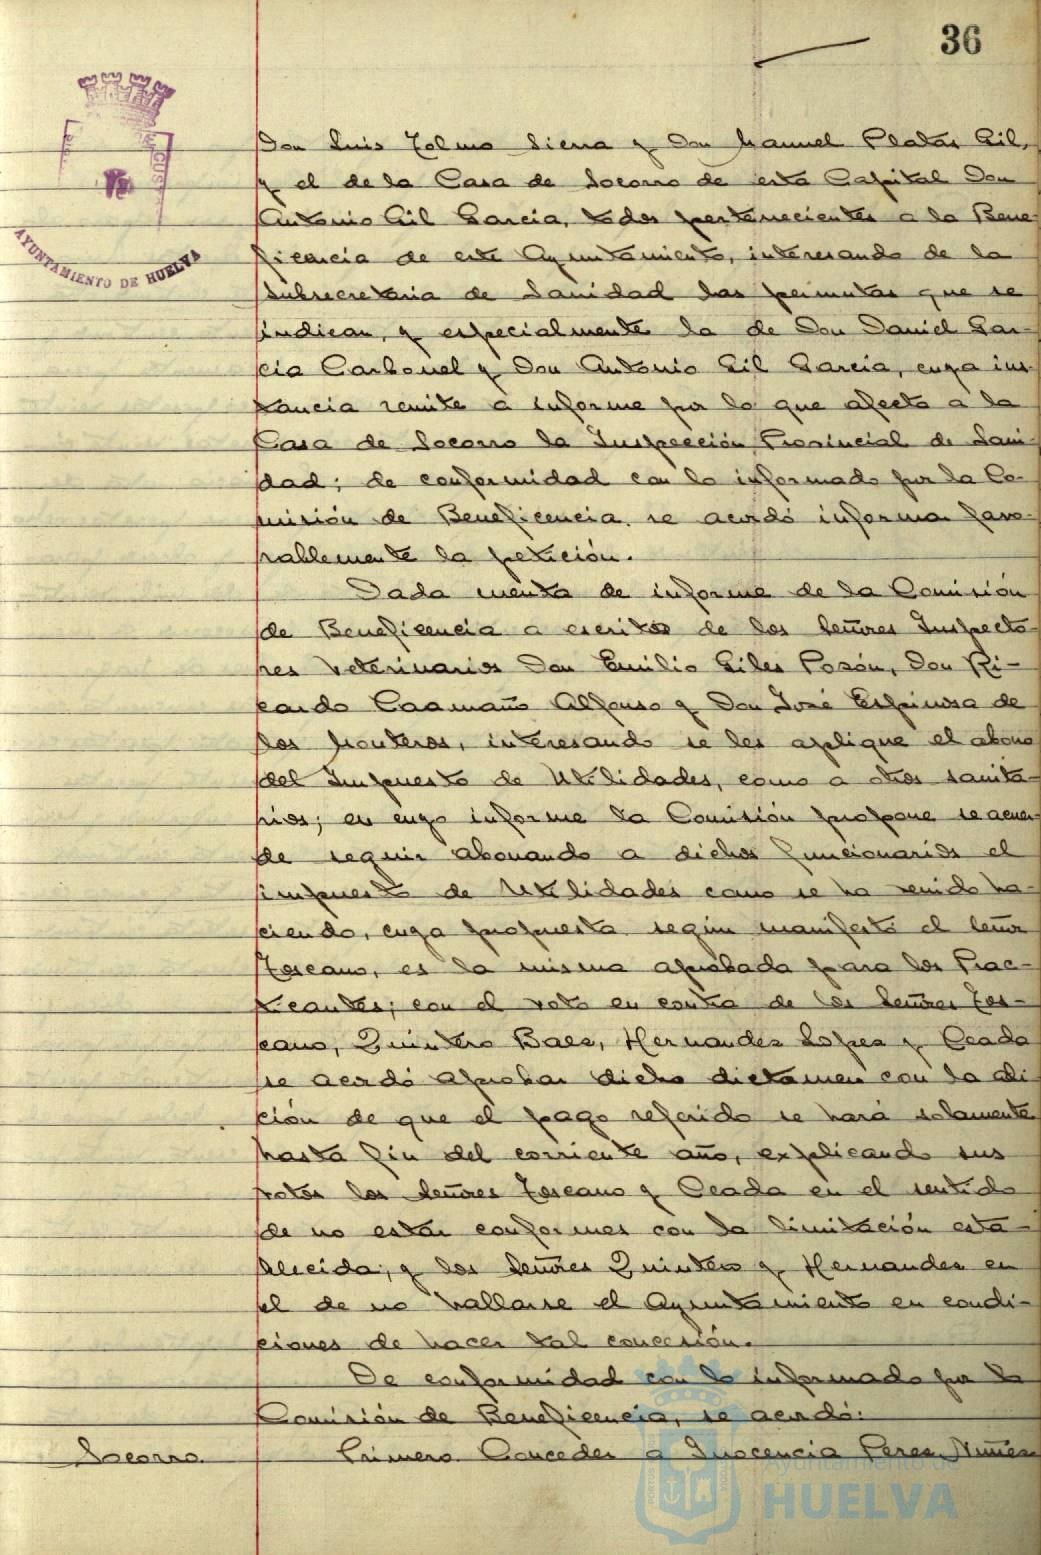 36
AYUNTAMIENTO DE HUELVA
Don Luis Tolmo Sierra y Don Manuel Platas Gil,
y el de la Casa de Socorro de esta Capital Don
Antonio Gil Garcia, todos pertenecientes a la Bene-
ficencia de este Ayuntamiento, interesando de la
Subsecretaria de Sanidad las permutas que se
indican, y especialmente la de Don Daniel Gar-
cia Carbonel y Don Antonio Gil Garcia, cuya ins-
tancia remite a informe por lo que afecta a la
Casa de Socorro la Inspección Provincial de Sani-
dad; de conformidad con lo informado por la Co-
misión de Beneficencia se acordó informar favo-
rablemente la petición.
Dada cuenta de informe de la Comisión
de Beneficencia a escritos de los Señores Inspecto-
res Veterinarios Don Emilio Giles Pozón, Don Ri-
cardo Caamaño Alfonso y Don José Espinosa de
los Monteros, interesando se les aplique el abono
del Impuesto de Utilidades, como a otros sanita-
rios; en cuyo informe la Comisión propone se acuer-
de seguir abonando a dichos funcionarios el
impuesto de Utilidades como se ha venido ha-
ciendo, cuya propuesta según manifestó el Señor
Toscano, es la misma aprobada para los Prac-
ticantes; con el voto en contra de los Señores Tos-
cano, Quintero Baez, Hernandez Lopez y Ceada
se acordó aprobar dicho dictamen con la adi
ción de que el pago referido se hará solamente
hasta fin del corriente año, explicando sus
votos los Señores Toscano y Ceada en el sentido
de no estar conformes con la limitación esta-
blecida; y los Señores Quintero y Hernandez en
el de no hallarse el Ayuntamiento en condi-
ciones de hacer tal concesión.
De conformidad con lo informado por la
Comisión de Beneficencia, se acordó:
Socorro. Primero. Conceder a Inocencia Perez Nuñez
Ayuntamiento de
HUELVA